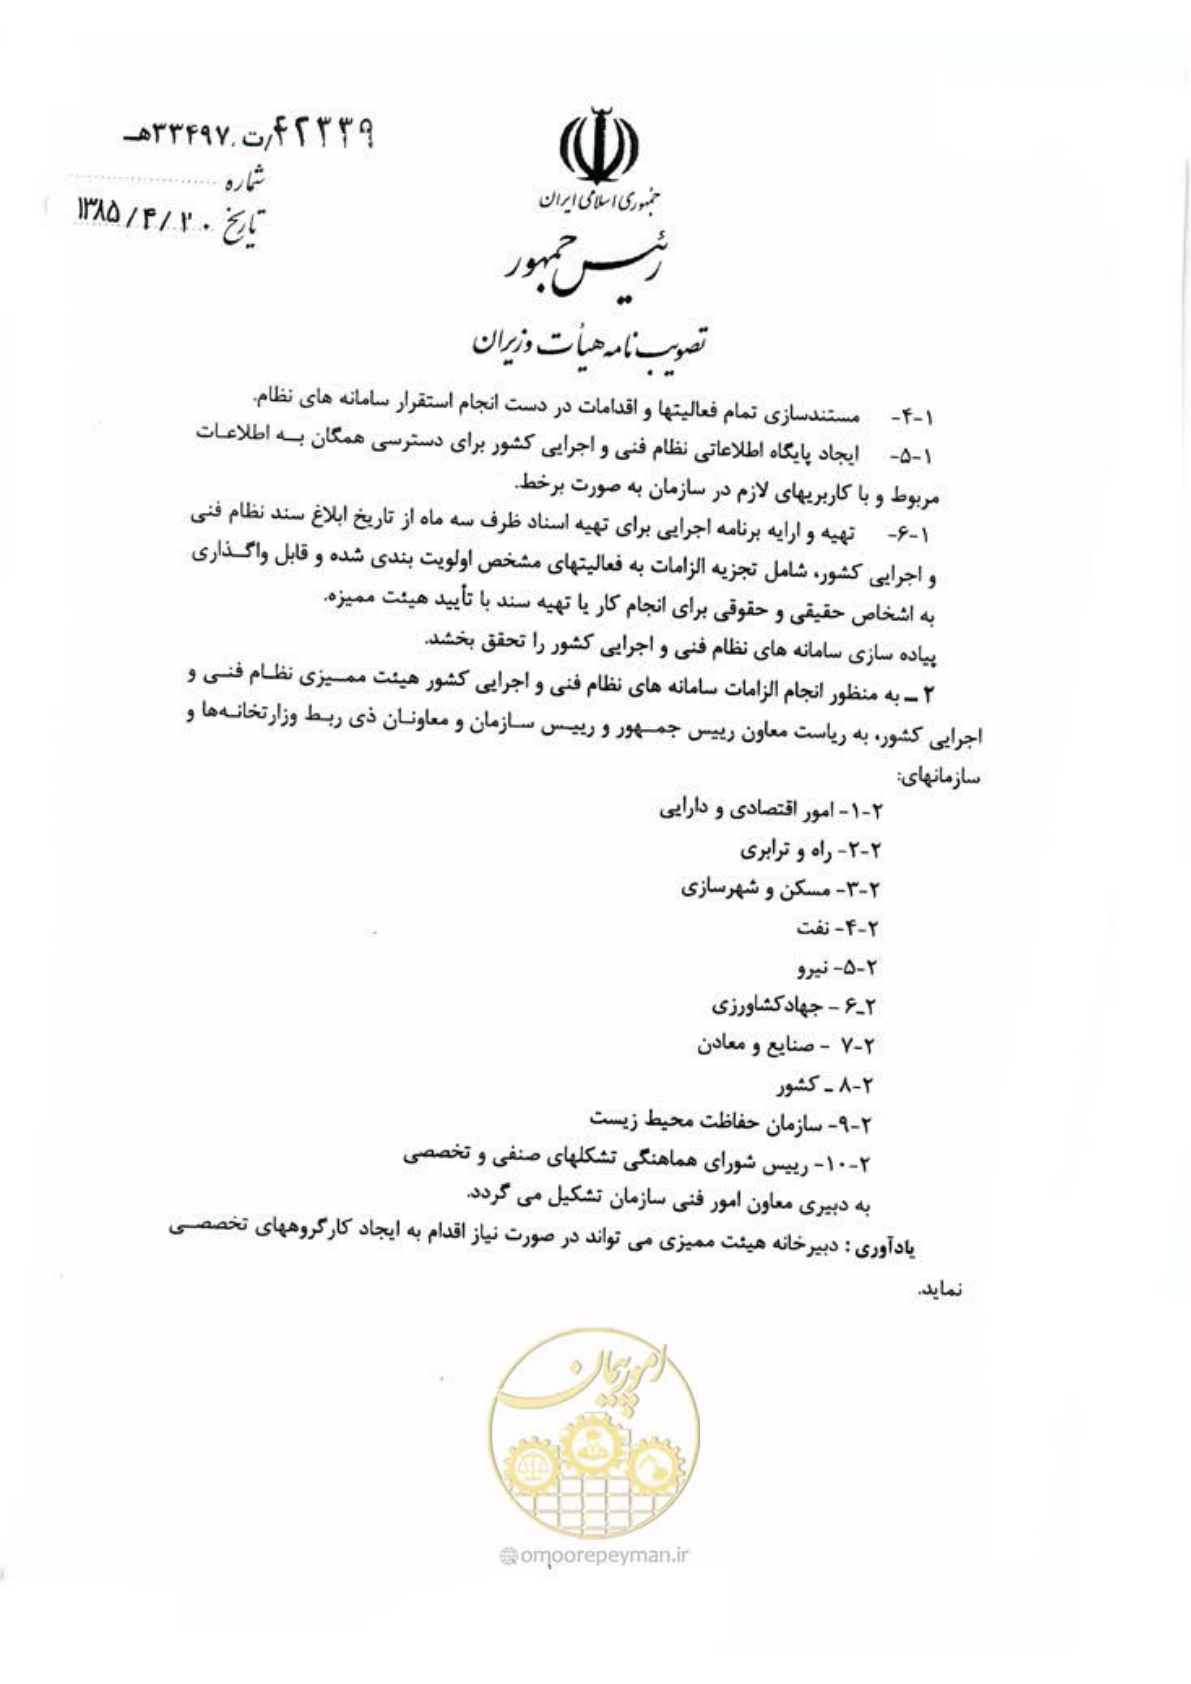 ۴۲۳۳۹/ت۳۳۴۹۷هـ
شماره
تاریخ ۱۳۸۵/۴/۲۰
جمهوری اسلامی ایران
رئیس جمهور
تصویب نامه هیأت وزیران
۴-۱- مستندسازی تمام فعالیتها و اقدامات در دست انجام استقرار سامانه های نظام.
۵-۱- ایجاد پایگاه اطلاعاتی نظام فنی و اجرایی کشور برای دسترسی همگان بــه اطلاعـات
مربوط و با کاربریهای لازم در سازمان به صورت برخط.
۶-۱- تهیه و ارایه برنامه اجرایی برای تهیه اسناد ظرف سه ماه از تاریخ ابلاغ سند نظام فنی
و اجرایی کشور، شامل تجزیه الزامات به فعالیتهای مشخص اولویت بندی شده و قابل واگـذاری
به اشخاص حقیقی و حقوقی برای انجام کار یا تهیه سند با تأیید هیئت ممیزه.
پیاده سازی سامانه های نظام فنی و اجرایی کشور را تحقق بخشد.
۲ ــ به منظور انجام الزامات سامانه های نظام فنی و اجرایی کشور هیئت ممـیزی نظـام فنـی و
اجرایی کشور، به ریاست معاون رییس جمـهور و رییـس سـازمان و معاونـان ذی ربـط وزارتخانـه‌ها و
سازمانهای:
۱-۲- امور اقتصادی و دارایی
۲-۲- راه و ترابری
۳-۲- مسکن و شهرسازی
۴-۲- نفت
۵-۲- نیرو
۶ــ۲ – جهادکشاورزی
۷-۲ – صنایع و معادن
۸-۲ ــ کشور
۹-۲- سازمان حفاظت محیط زیست
۱۰-۲- رییس شورای هماهنگی تشکلهای صنفی و تخصصی
به دبیری معاون امور فنی سازمان تشکیل می گردد.
یادآوری : دبیرخانه هیئت ممیزی می تواند در صورت نیاز اقدام به ایجاد کارگروههای تخصصــی
نماید.
امور پیمان
@omoorepeyman.ir